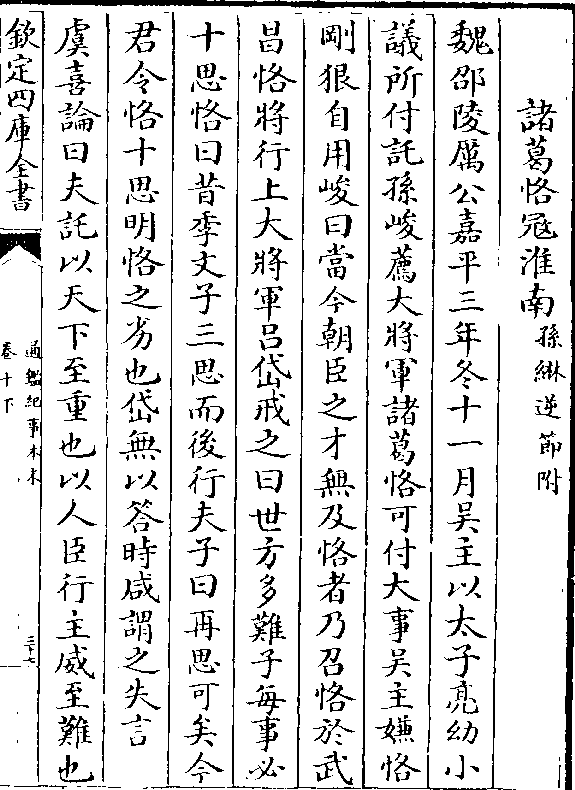 諸葛恪冦淮南孫綝逆節附
魏邵陵厲公嘉平三年冬十一月吳主以太子亮幼小
議所付託孫峻薦大將軍諸葛恪可付大事吳主嫌恪
剛狠自用峻曰當今朝臣之才無及恪者乃召恪於武
昌恪將行上大將軍吕岱戒之曰世方多難子每事必
十思恪曰昔季文子三思而後行夫子曰再思可矣今
君令恪十思明恪之劣也岱無以答時咸謂之失言
虞喜論曰夫託以天下至重也以人臣行主威至難也
欽定四庫全書
通鑑紀事本末
卷十下
三十七